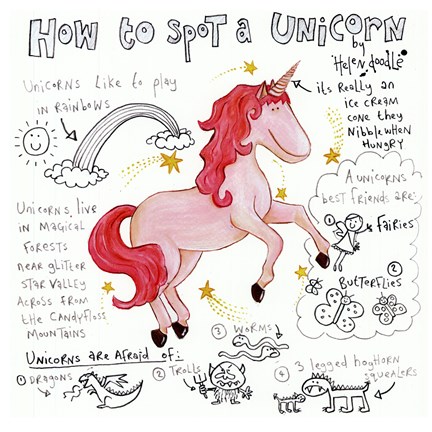 How to spot a Unicorn
by
Helen doodle
Unicorns like to play
in Rainbows
its Really an
ice cream
cone they
Nibble when
Hungry
A unicorns
best friends are:
1 Fairies
Butterflies 2
Unicorns live
in Magical
Forests
near glitter
Star Valley
Across from
the Candyfloss
Mountains
Unicorns are Afraid of:
1 Dragons
2 Trolls
3 Worms
4 3 legged hoghorn
squealers